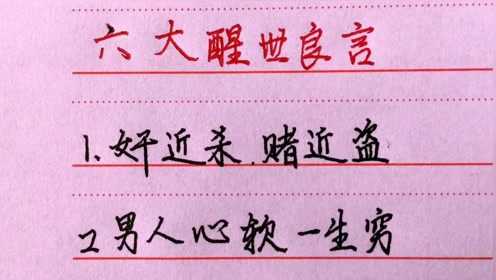 六大醒世良言
1、奸近杀.赌近盗
2男人心软一生穷